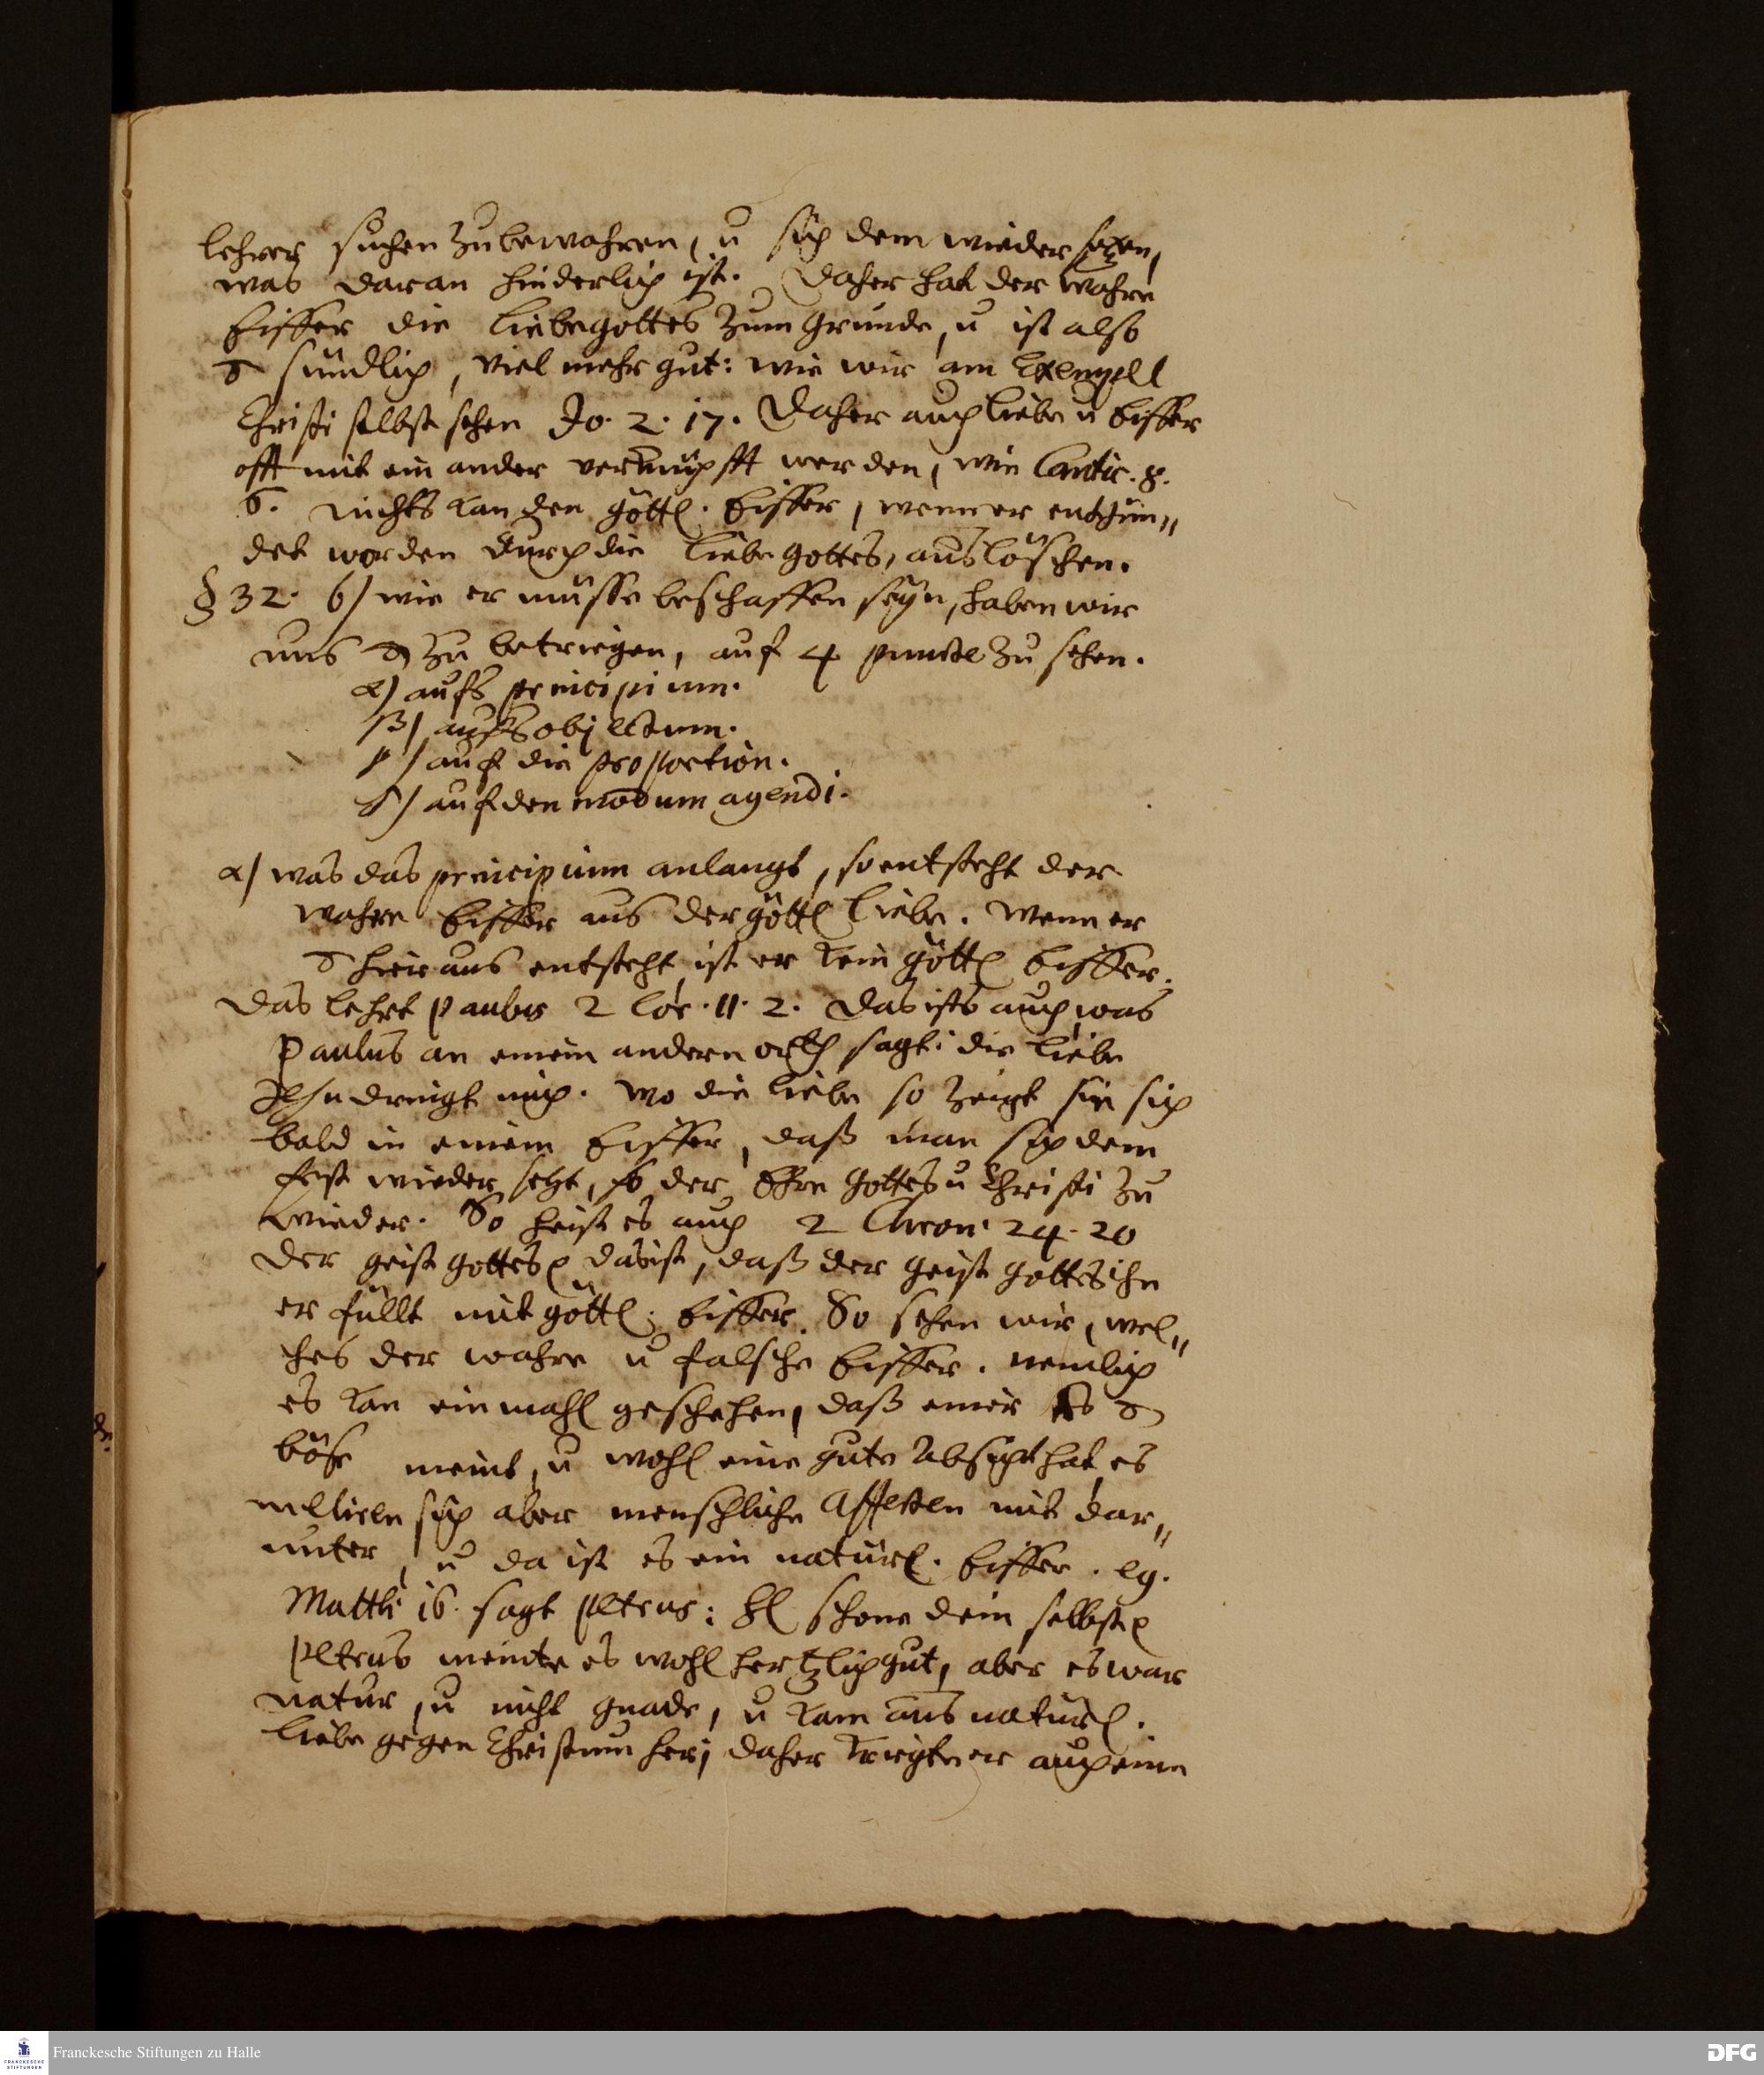 lehrer suchen zubewahren, u sich dem wieder setzen,
was daran hinderlich ist. Daher hat der wahre
Eiffer die liebe gottes zum grunde, u ist also
sündlich, viel mehr gut: wie wir am Exempell
Christi selbst sehen Jo. 2. 17. Daher auch liebe u Eiffer
offt mit ein ander verknüpfft werden, wie Cantic. 8.
6. nichts kan den göttl. Eiffer, wenn er entzün„
det worden durch die liebe gottes, auslöschen.
§ 32. b) wie er müsse beschaffen seyn, haben wir
uns zu betriegen, auf 4 puncte zu sehen.
α) aufs principium.
β) aufs objectum.
γ) auf die proportion.
δ) auf den modum agendi.
α) was das principium anlangt, so entsteht der
wahre Eiffer aus der göttl liebe. wenn er
hieraus entsteht, ist er kein göttl Eiffer.
Das lehrt Paulus 2 Cor. 11. 2. Das ists auch, was
Paulus an einem andern orth sagt: die liebe
dringt mich. wo die liebe so zeigt sie sich
bald in einem Eiffer, daß man sich dem
fest wieder setzt, so der Ehre Gottes u Christi zu
wieder. So heist es auch 2 Chron. 24. 20
Der geist gottes das ist, daß der geist gottes ihn
er füllt mit göttl. Eiffer. So sehen wir, wel„
ches der wahre u falsche Eiffer. nemlich
es kan ein mahl geschehen, daß einer es
böse meint, u wohl eine gute Absicht hat, es
meliren sich aber menschliche Affecten mit dar„
unter, u da ist es ein natürl. Eiffer. eg.
Matth 16. sagt Petrus: H schone dein selbst
Petrus meinte es wohl hertzlich gut, aber es war
natur, u nicht gnade, u kam aus natürl.
liebe gegen Christum her; daher kriegte er auch einen
Franckesche Stiftungen zu Halle
FRANCKESCHE STIFTUNGEN
DFG